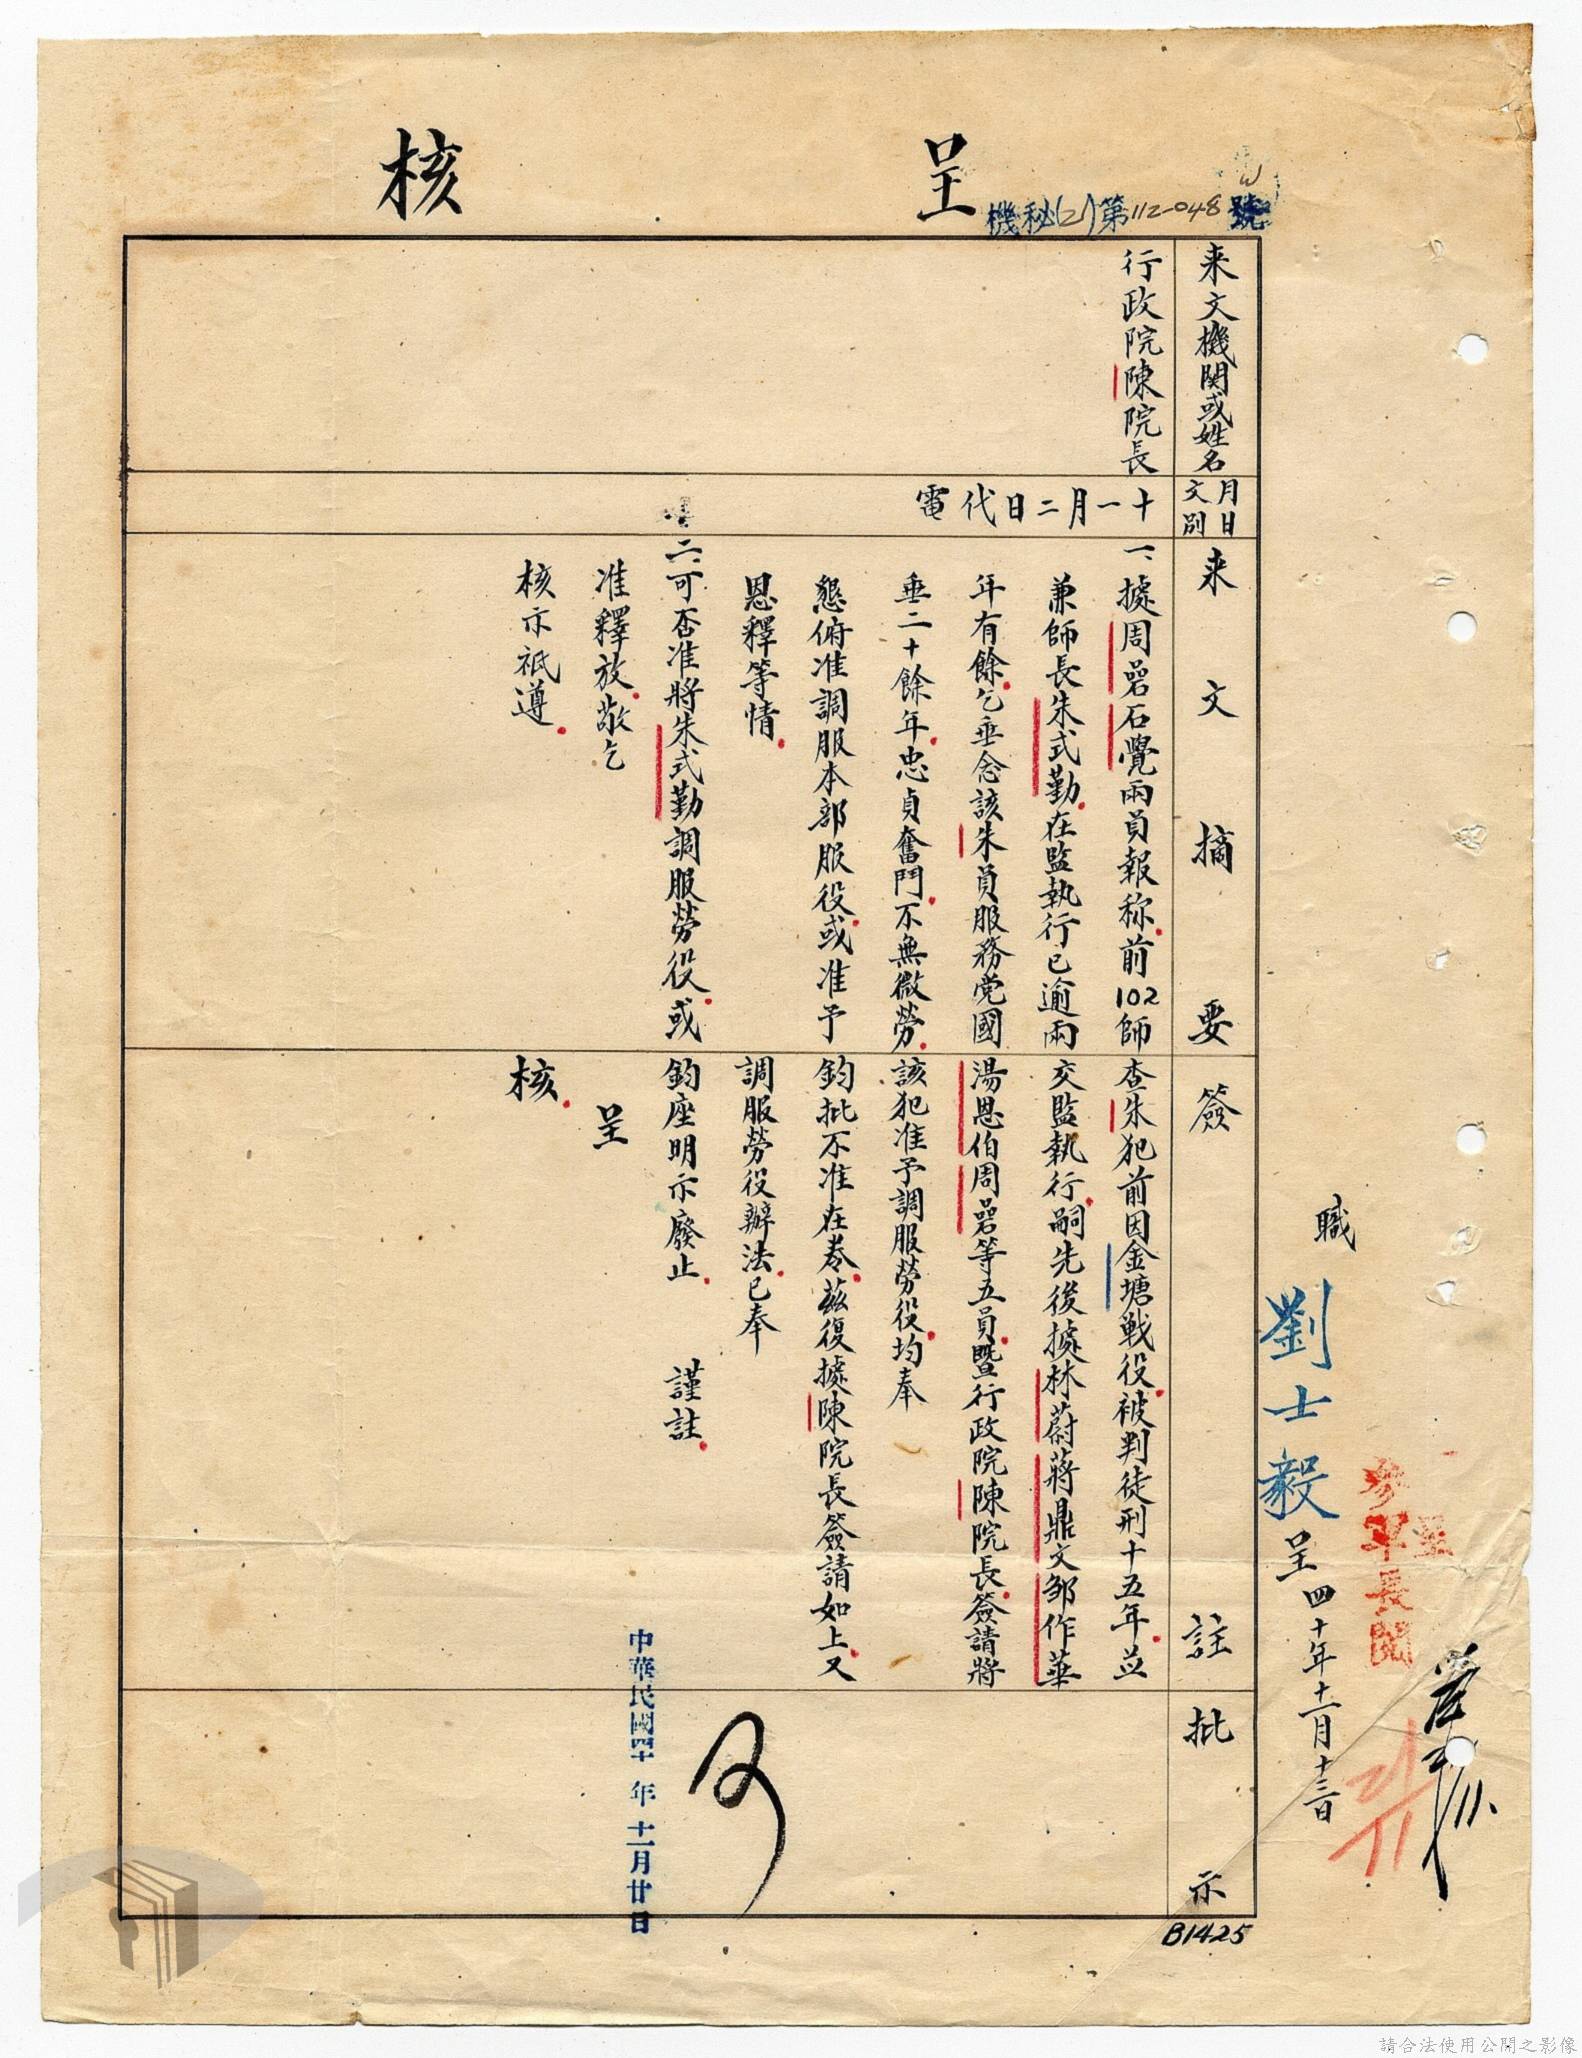 呈核
機秘(21)第112-048號
来文機関或姓名
行政院陳院長
月日
文别
十一月二日代電
来文摘要
一、據周喦石覺兩員報称前102師
兼師長朱式勤在監執行已逾兩
年有餘乞垂念該朱員服務党國
垂二十餘年忠貞奮鬥不無微勞
懇俯准調服本部服役或准予
恩釋等情
二、可否准將朱式勤調服勞役或
准釋放敬乞
核示祇遵
簽註
查朱犯前因金塘戰役被判徒刑十五年並
交監執行嗣先後據林蔚蔣鼎文邹作華
湯恩伯周喦等五員暨行政院陳院長簽請將
該犯准予調服勞役均奉
鈞批不准在卷茲復據陳院長簽請如上又
調服勞役辦法已奉
鈞座明示廢止 謹註
呈
核
批示
可
中華民國四十年十一月廿日
職劉士毅呈四十年十一月十三日
呈
參軍長閱
21/11
B1425
請合法使用公開之影像